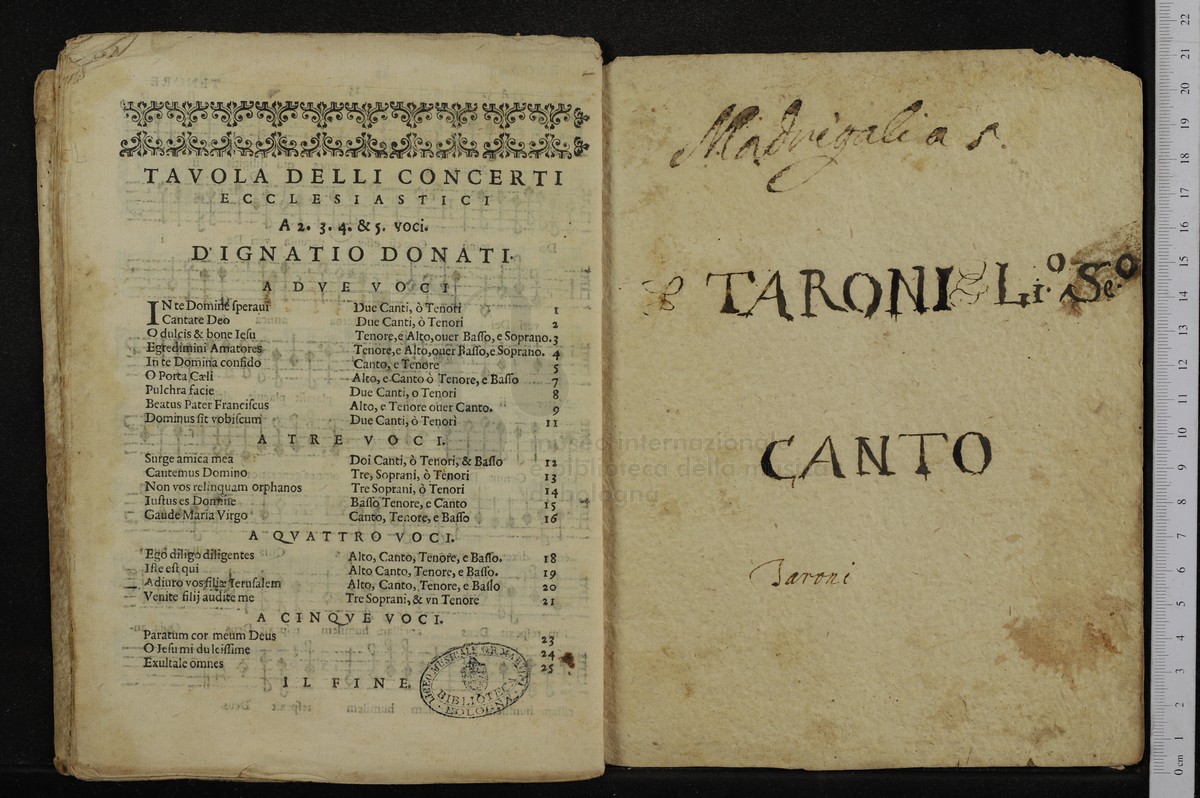 TAVOLA DELLI CONCERTI
ECCLESIASTICI
A 2. 3. 4. & 5. voci.
D'IGNATIO DONATI.
A DVE VOCI
IN te Domine ſperaui Due Canti, ò Tenori 1
Cantate Deo Due Canti, ò Tenori 2
O dulcis & bone Ieſu Tenore, e Alto, ouer Baſſo, e Soprano. 3
Egredimini Amatores Tenore, e Alto, ouer Baſſo, e Soprano. 4
In te Domina confido Canto, e Tenore 5
O Porta Cæli Alto, e Canto ò Tenore, e Baſſo 7
Pulchra facie Due Canti, o Tenori 8
Beatus Pater Franciſcus Alto, e Tenore ouer Canto. 9
Dominus ſit vobiſcum Due Canti, ò Tenori 11
A TRE VOCI.
Surge amica mea Doi Canti, ò Tenori, & Baſſo 12
Cantemus Domino Tre, Soprani, ò Tenori 13
Non vos relinquam orphanos Tre Soprani, ò Tenori 14
Iuſtus es Domine Baſſo Tenore, e Canto 15
Gaude Maria Virgo Canto, Tenore, e Baſſo 16
A QVATTRO VOCI.
Ego diligo diligentes Alto, Canto, Tenore, e Baſſo. 18
Iſte eſt qui Alto Canto, Tenore, e Baſſo. 19
Adiuro vos filiæ Ieruſalem Alto, Canto, Tenore, e Baſſo 20
Venite filij audite me Tre Soprani, & vn Tenore 21
A CINQVE VOCI.
Paratum cor meum Deus 23
O Ieſu mi dulciſſime 24
Exultate omnes 25
IL FINE.
LICEO MUSICALE G.B. MARTINI
BIBLIOTECA
BOLOGNA
Madrigali a 5.
TARONI Li.o Se.o
CANTO
Taroni
museo internazionale
e biblioteca della musica
di bologna
22 21 20 19 18 17 16 15 14 13 12 11 10 9 8 7 6 5 4 3 2 1 0 cm